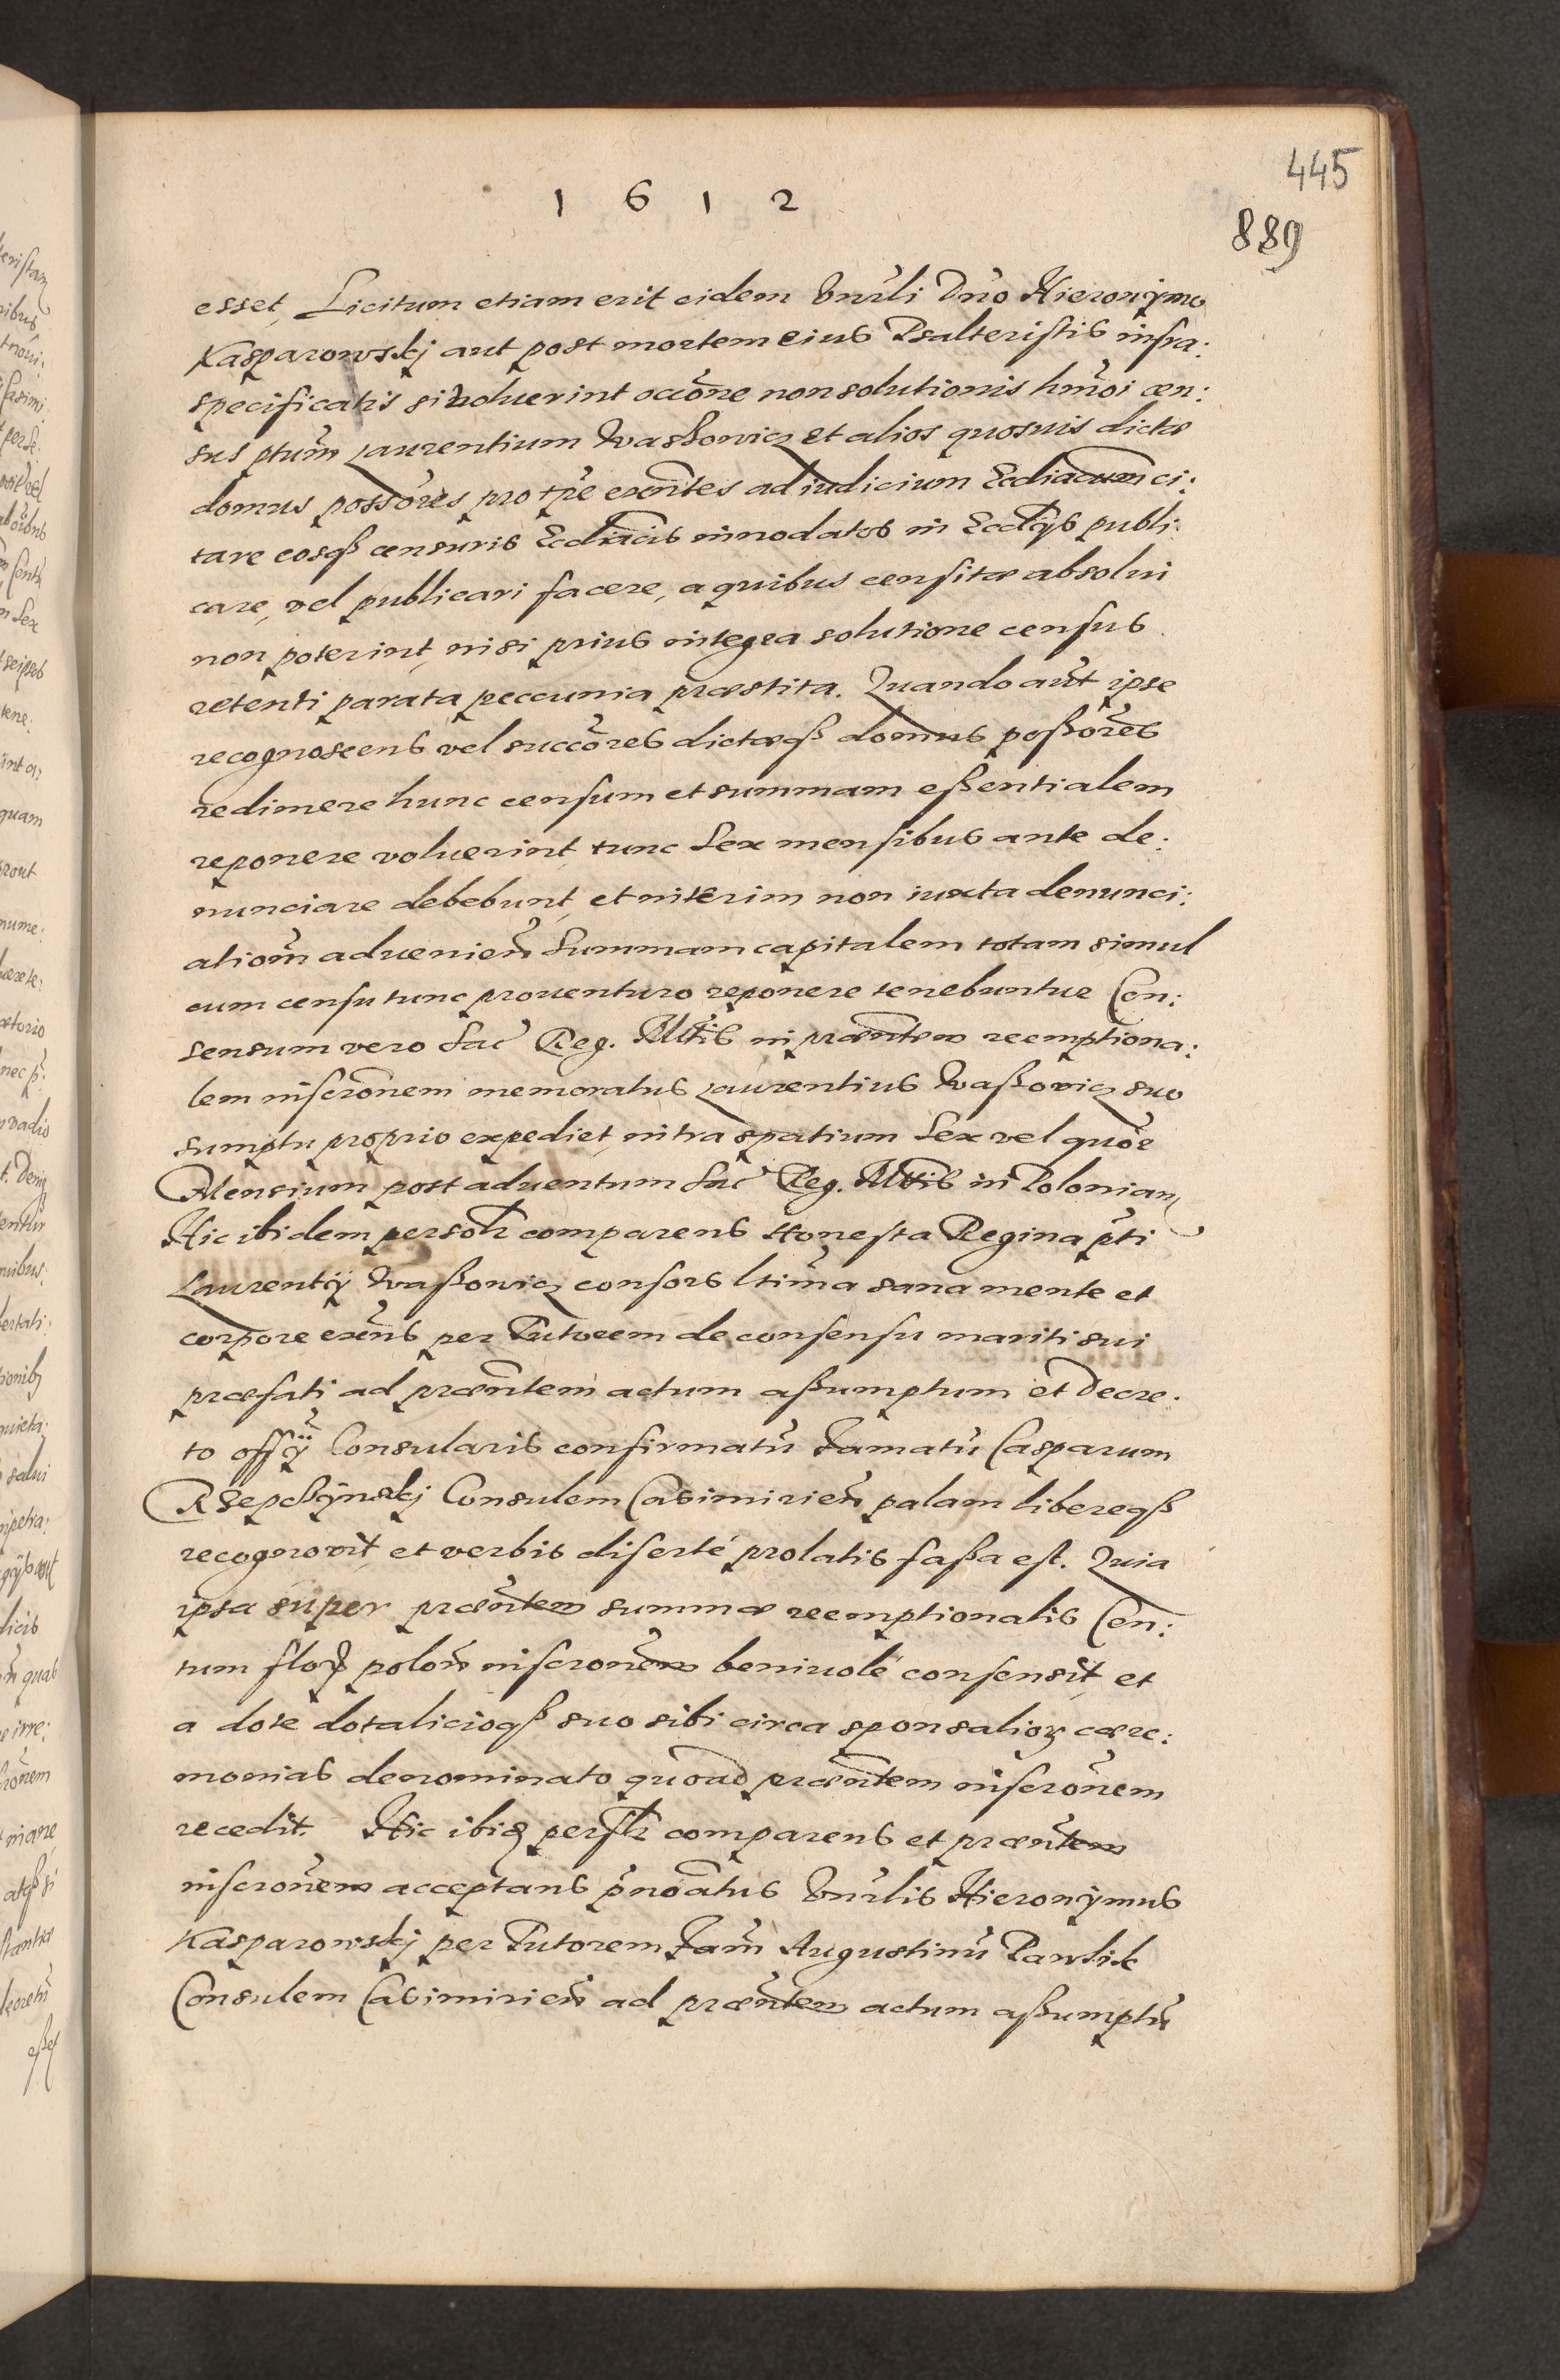 445
1 6 1 2
889
esset, Licitum etiam erit eidem Vnrli Dno Hieronÿmo
Kasparowskj aut post mortem eius Psalteristis infra:
specificatis si voluerint occone non solutionis hmoi cen:
sus ptum Laurentium Waskowicz et alios quosuis dictæ
domus possores pro tpe exntes ad iudicium Eccliacum ci:
tare eosqß censuris Ecclacis innodatos in Ecclÿs publi:
care, vel publicari facere, a quibus censitæ absolui
non poterint, nisi prius integra solutione census
retenti parata peccunia præstita. Quando aut ipse
recognoscens vel succores dictæqß domus poßores
redimere hunc censum et summam eßentialem
reponere voluerint tunc Sex mensibus ante de:
nunciare debebunt, et interim non iuxta denunci:
ationm aduenien Summam capitalem totam simul
cum censu tunc prouenturo reponere tenebuntur Con:
sensum vero Sac Reg. Mttis in præntem reemptiona:
lem inscronem memoratus Laurentius Waßowicz suo
sumptu proprio expediet, intra spatium Sex vel quor
Mensium post aduentum Sac Reg. Mttis in Poloniam
Hic ibidem personlr comparens Honesta Regina pti
Laurentÿ Waßowicz consors ltima sana mente et
corpore exns per Tutorem de consensu mariti sui
præfati ad præntem actum aßumptum et Decre:
to offÿ Consularis confirmatu Famatu Casparum
Rzepczÿnskj Consulem Casimirien palam libereqß
recognovit et verbis diserté prolatis faßa est. Quia
ipsa super præntem summæ reemptionalis Cen:
tum flor polon inscronem beniuole consensit et
a dote dotalicioqß suo sibi circa sponsalior cære:
monias denominato quoad præntem inscronem
recedit. Hic ibid perslr comparens et præntem
inscronem acceptans pnoatus Vnrlis Hieronÿmus
Kasparowskj per Tutorem Fam Augustinu Pawlik
Consulem Casimirien ad præntem actum aßumptu